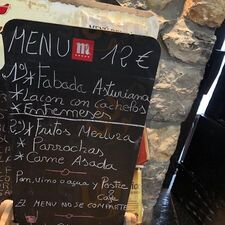 MENU m 12 €
1º) * Fabada Asturiana
* Lacon con cachelos
* Entremeses
2º) * Fritos Merluza
* Parrochas
* Carne Asada
Pan, vino o agua y Postre o
Café
EL MENU NO SE COMPARTE